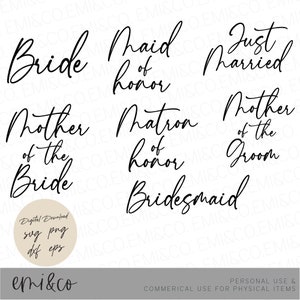 Bride
Maid
of
honor
Just
Married
Mother
of the
Bride
Matron
of
honor
Mother
of the
Groom
Bridesmaid
Digital Download
svg png
dxf eps
emi&co
PERSONAL USE &
COMMERICAL USE FOR PHYSICAL ITEMS